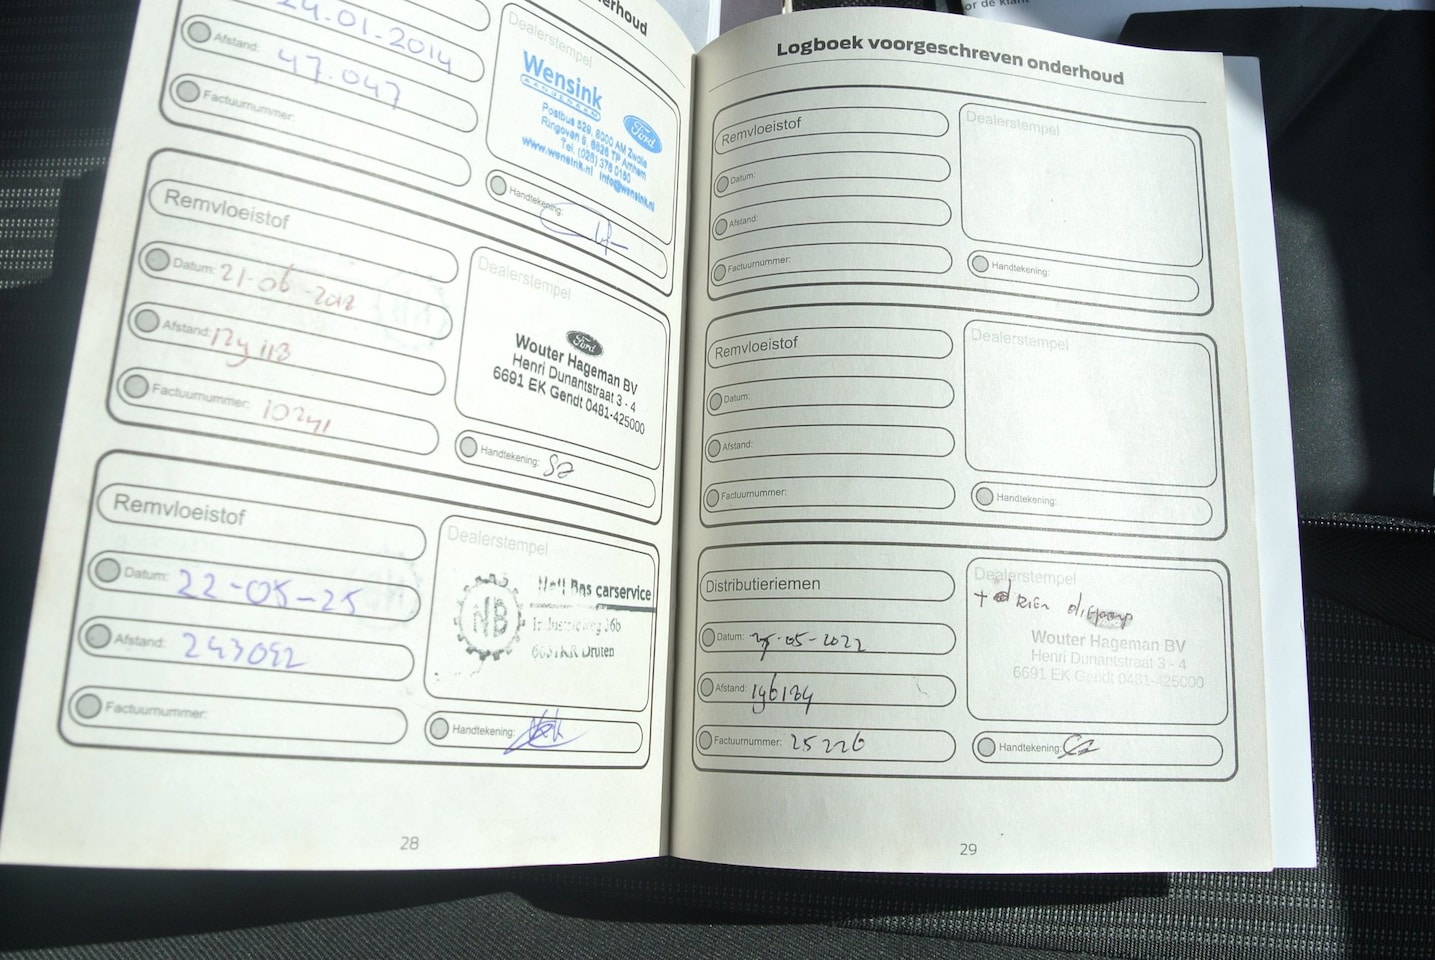 erhoud
24.01-2014
Afstand: 47.047
Factuurnummer:
Dealerstempel
Wensink
Ford
Postbus 529, 8000 AM Zwolle
Ringoven 6, 6826 TP Arnhem
Tel. (026) 376 0180
www.wensink.nl info@wensink.nl
Handtekening:
Remvloeistof
Datum: 21-06-2018
Afstand:
Factuurnummer: 10241
Dealerstempel
Ford
Wouter Hageman BV
Henri Dunantstraat 3 - 4
6691 EK Gendt 0481-425000
Handtekening:
Remvloeistof
Datum: 22-05-25
Afstand: 243092
Factuurnummer:
Dealerstempel
HB
carservice
Industrieweg 36b
Druten
Handtekening:
28
or de klant
Logboek voorgeschreven onderhoud
Remvloeistof
Datum:
Afstand:
Factuurnummer:
Dealerstempel
Handtekening:
Remvloeistof
Datum:
Afstand:
Factuurnummer:
Dealerstempel
Handtekening:
Distributieriemen
Datum: -05-2022
Afstand: 196184
Factuurnummer: 25226
Dealerstempel
+ Riem oliepomp
Wouter Hageman BV
Henri Dunantstraat 3 - 4
6691 EK Gendt 0481-425000
Handtekening:
29